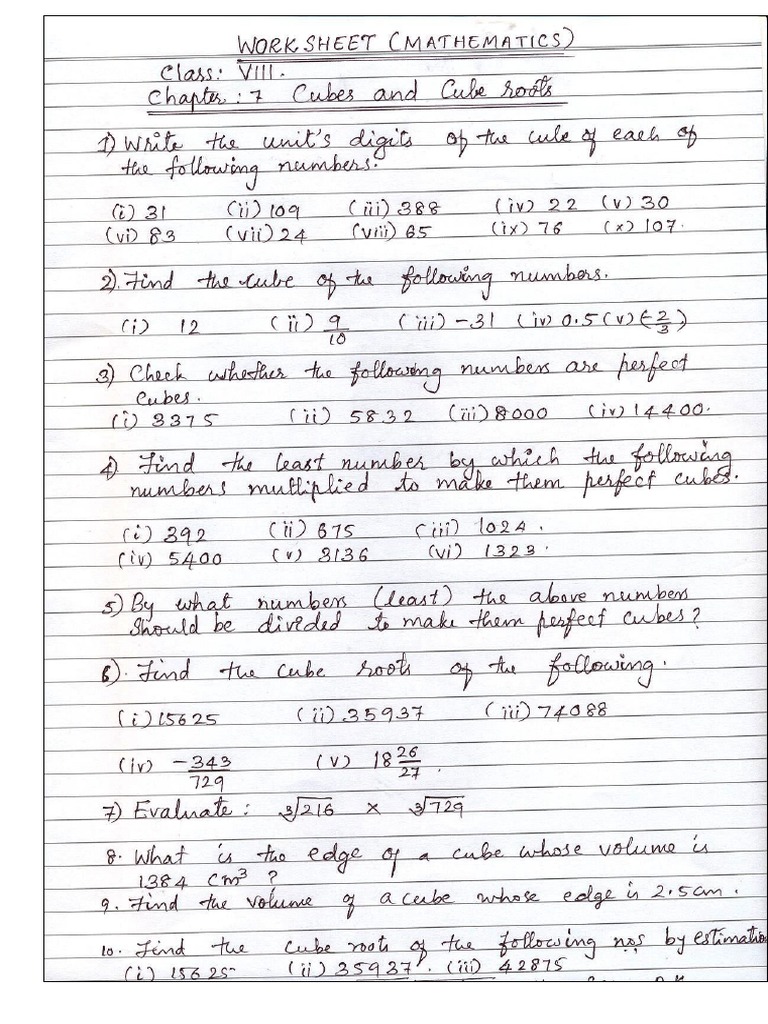 WORK SHEET (MATHEMATICS)
Class: VIII.
Chapter : 7 Cubes and Cube roots
1) Write the unit's digits of the cube of each of
the following numbers.
(i) 31 (ii) 109 (iii) 388 (iv) 22 (v) 30
(vi) 83 (vii) 24 (viii) 65 (ix) 76 (x) 107.
2). Find the cube of the following numbers.
(i) 12 (ii) 9/10 (iii) -31 (iv) 0.5 (v) (-2/3)
3) Check whether the following numbers are perfect
cubes.
(i) 3375 (ii) 5832 (iii) 8000 (iv) 14400.
4) Find the least number by which the following
numbers multiplied to make them perfect cubes.
(i) 392 (ii) 675 (iii) 1024.
(iv) 5400 (v) 3136 (vi) 1323.
5) By what numbers (least) the above numbers
should be divided to make them perfect cubes?
6). Find the cube roots of the following.
(i) 15625 (ii) 35937 (iii) 74088
(iv) -343/729 (v) 18 26/27.
7) Evaluate : ∛216 × ∛729
8. What is the edge of a cube whose volume is
1384 cm³ ?
9. Find the volume of a cube whose edge is 2.5cm.
10. Find the cube roots of the following nos by estimation
(i) 15625 (ii) 35937. (iii) 42875